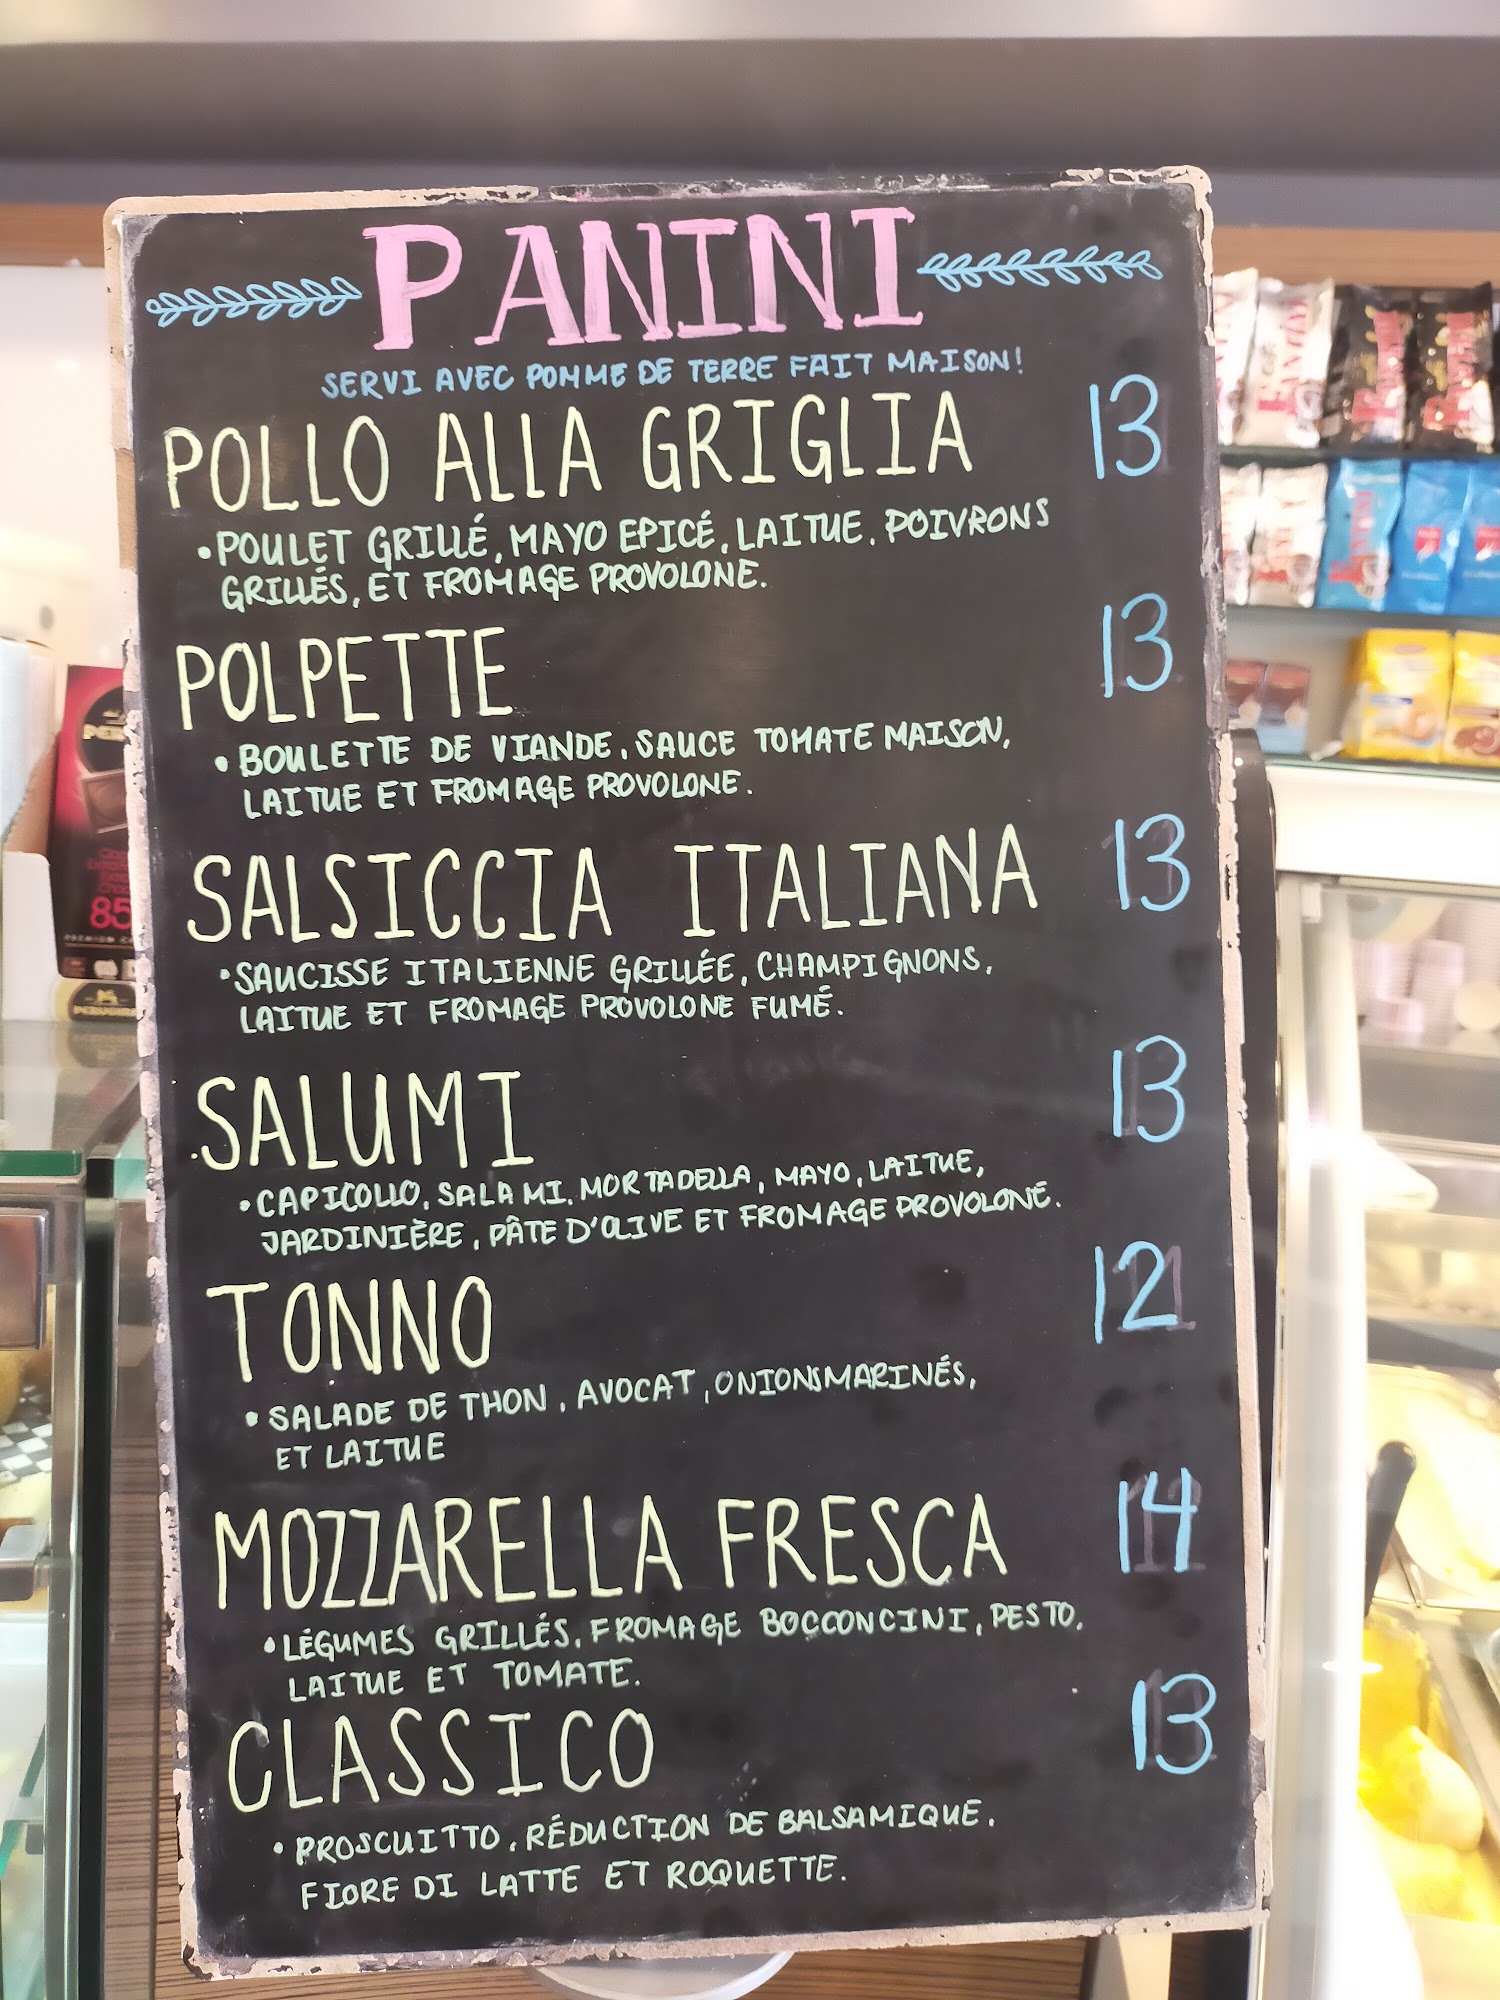 PANINI
SERVI AVEC POMME DE TERRE FAIT MAISON!
POLLO ALLA GRIGLIA 13
•POULET GRILLÉ, MAYO EPICÉ, LAITUE, POIVRONS
GRILLÉS, ET FROMAGE PROVOLONE.
POLPETTE 13
•BOULETTE DE VIANDE, SAUCE TOMATE MAISON,
LAITUE ET FROMAGE PROVOLONE.
SALSICCIA ITALIANA 13
•SAUCISSE ITALIENNE GRILLÉE, CHAMPIGNONS,
LAITUE ET FROMAGE PROVOLONE FUMÉ.
SALUMI 13
•CAPICOLLO, SALAMI, MORTADELLA, MAYO, LAITUE,
JARDINIÈRE, PÂTE D'OLIVE ET FROMAGE PROVOLONE.
TONNO 12
•SALADE DE THON, AVOCAT, ONIONS MARINÉS,
ET LAITUE
MOZZARELLA FRESCA 14
•LÉGUMES GRILLÉS, FROMAGE BOCCONCINI, PESTO,
LAITUE ET TOMATE.
CLASSICO 13
•PROSCUITTO, RÉDUCTION DE BALSAMIQUE,
FIORE DI LATTE ET ROQUETTE.
85